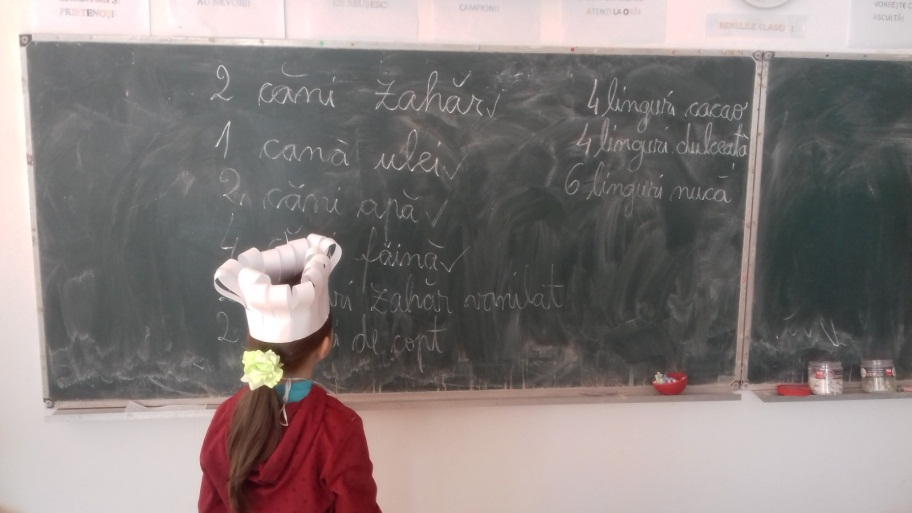 PRIETENOȘI
AU NEVOIE!
CAMPIONI!
ATENȚI LA ORĂ!
REGULILE CLASEI
ASCULTĂ!
2 căni zahăr✓
1 cană ulei✓
2 căni apă✓
4 făină✓
zahăr vanilat
2 de copt
4 linguri cacao
4 linguri dulceață
6 linguri nucă